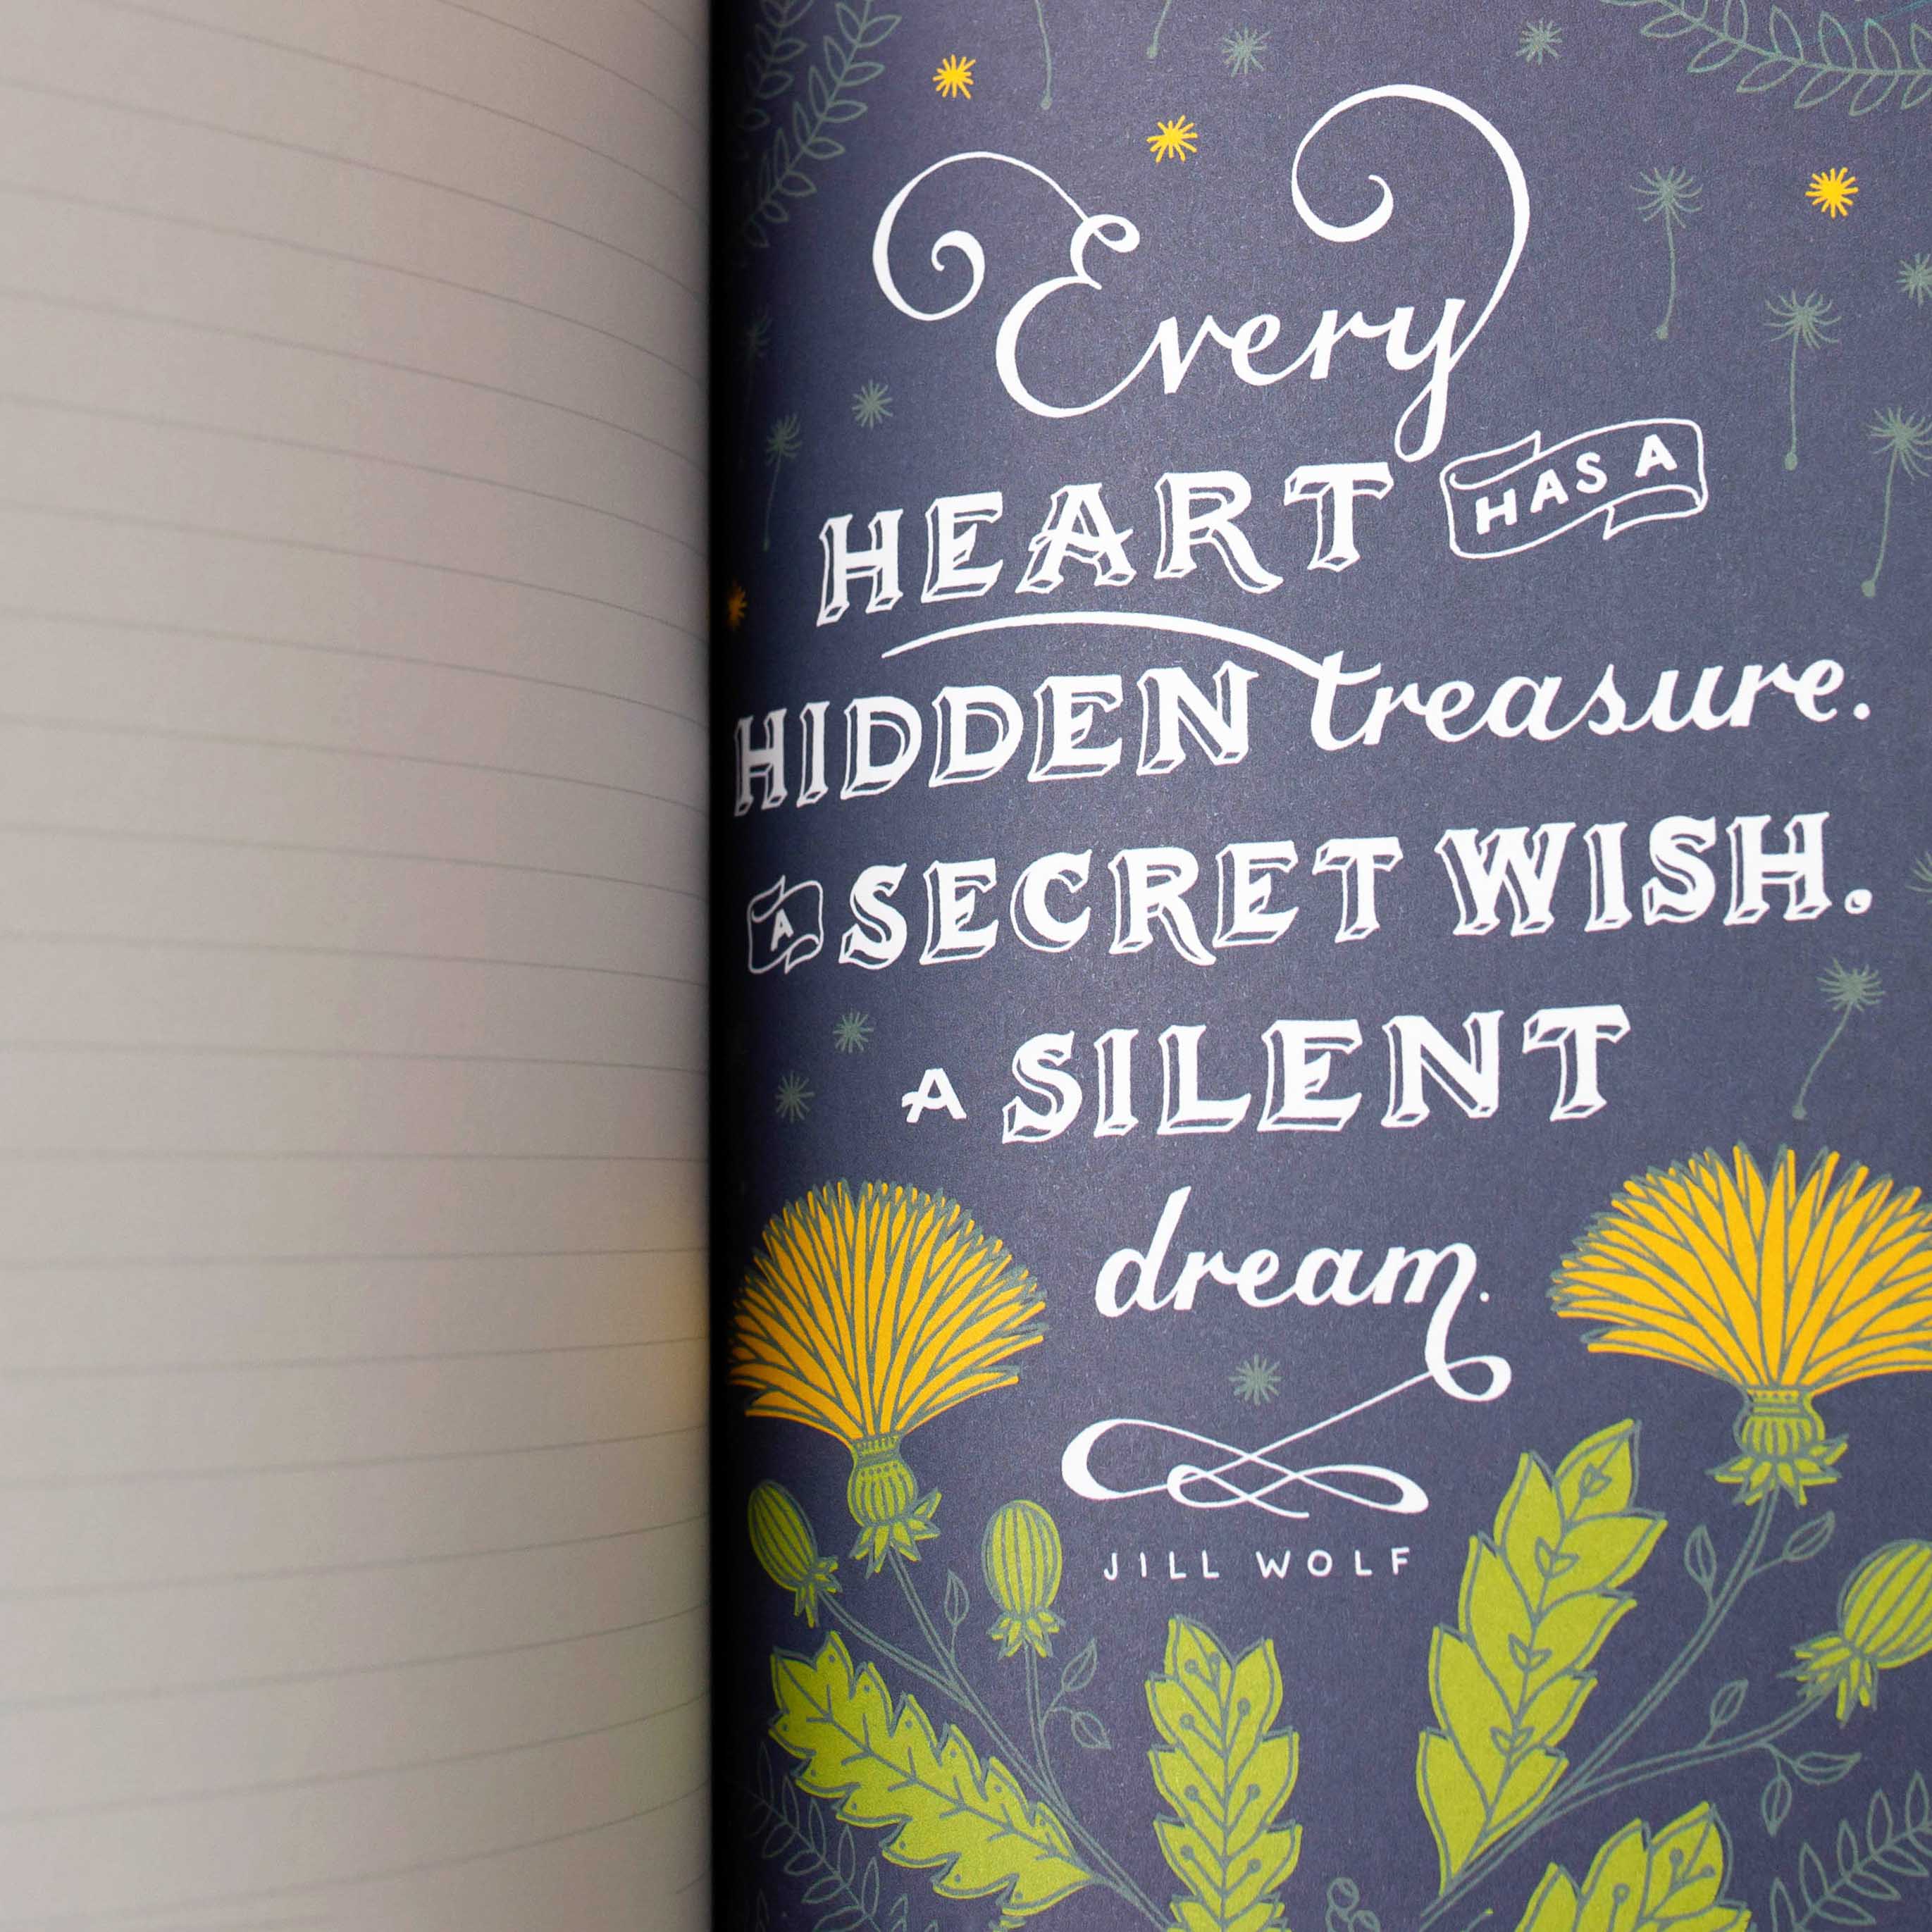 Every
HEART HAS A
HIDDEN treasure.
A SECRET WISH.
A SILENT
dream.
JILL WOLF